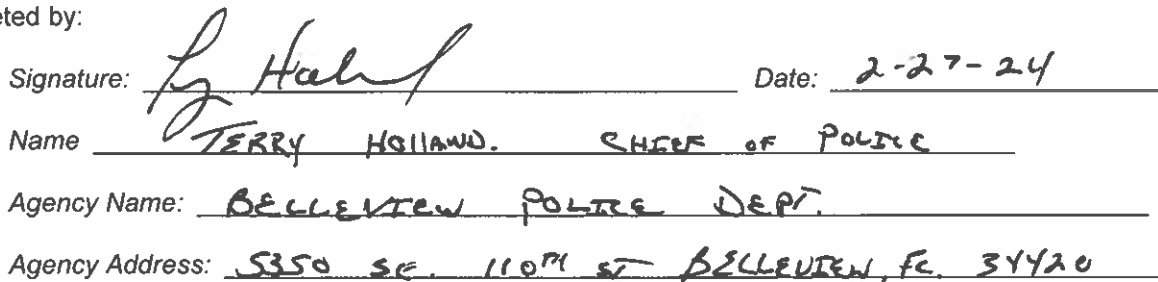 eted by:
Signature: Date: 2-27-24
Name TERRY HOLLAND. CHIEF OF POLICE
Agency Name: BELLEVIEW POLICE DEPT.
Agency Address: 5350 SE. 110TH ST BELLEVIEW, FL. 34420